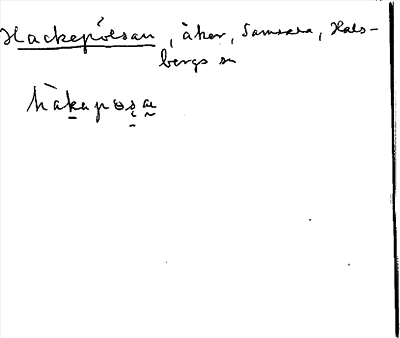 Hackepölsan, åker, Samsala, Hals-
bergs sn
hàkapɵsa